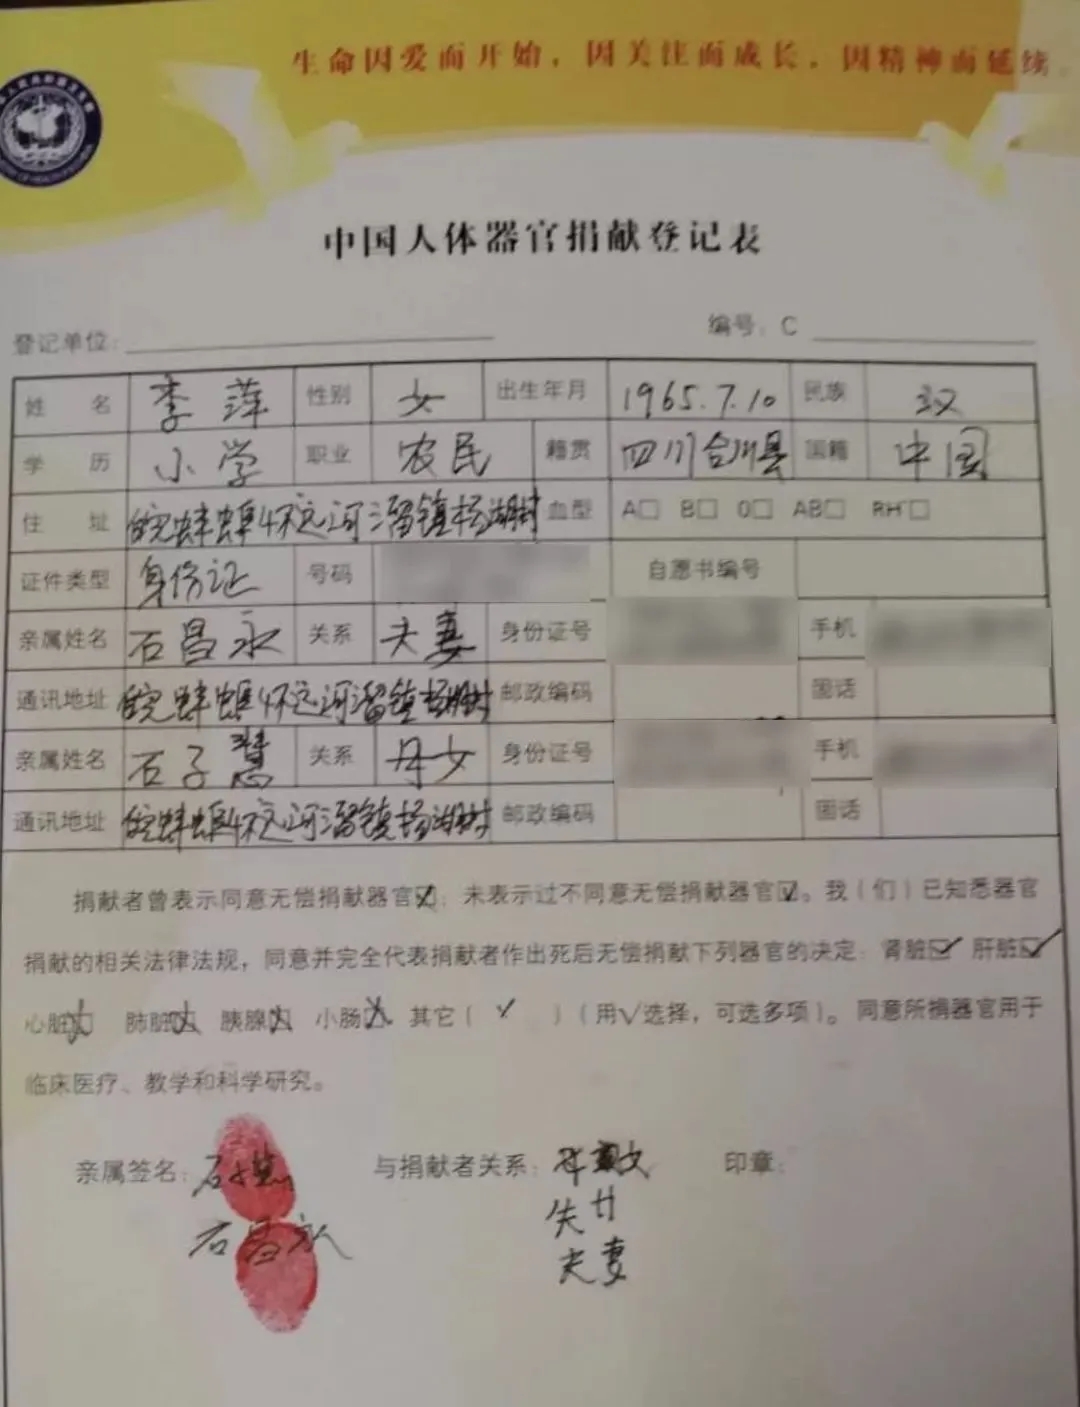 生命因爱而开始，因关注而成长，因精神而延续
中国人体器官捐献登记表
登记单位： 编号：C
姓 名 李萍 性别 女 出生年月 1965.7.10 民族 汉
学 历 小学 职业 农民 籍贯 四川合川县 国籍 中国
住 址 皖蚌蚌怀远河溜镇杨湖村 血型 A□ B□ O□ AB□ RH□
证件类型 身份证 号码 自愿书编号
亲属姓名 石昌永 关系 夫妻 身份证号 手机
通讯地址 皖蚌埠怀远河溜镇杨湖村 邮政编码 固话
亲属姓名 石子慧 关系 母女 身份证号 手机
通讯地址 皖蚌埠怀远河溜镇杨湖村 邮政编码 固话
捐献者曾表示同意无偿捐献器官☑；未表示过不同意无偿捐献器官☑。我（们）已知悉器官
捐献的相关法律法规，同意并完全代表捐献者作出死后无偿捐献下列器官的决定：肾脏☑ 肝脏☑
心脏☒ 肺脏☒ 胰腺☒ 小肠☒ 其它（ ✓ ）（用√选择，可选多项）。同意所捐器官用于
临床医疗、教学和科学研究。
亲属签名： 石子慧 与捐献者关系： 印章：
石昌永 夫妻